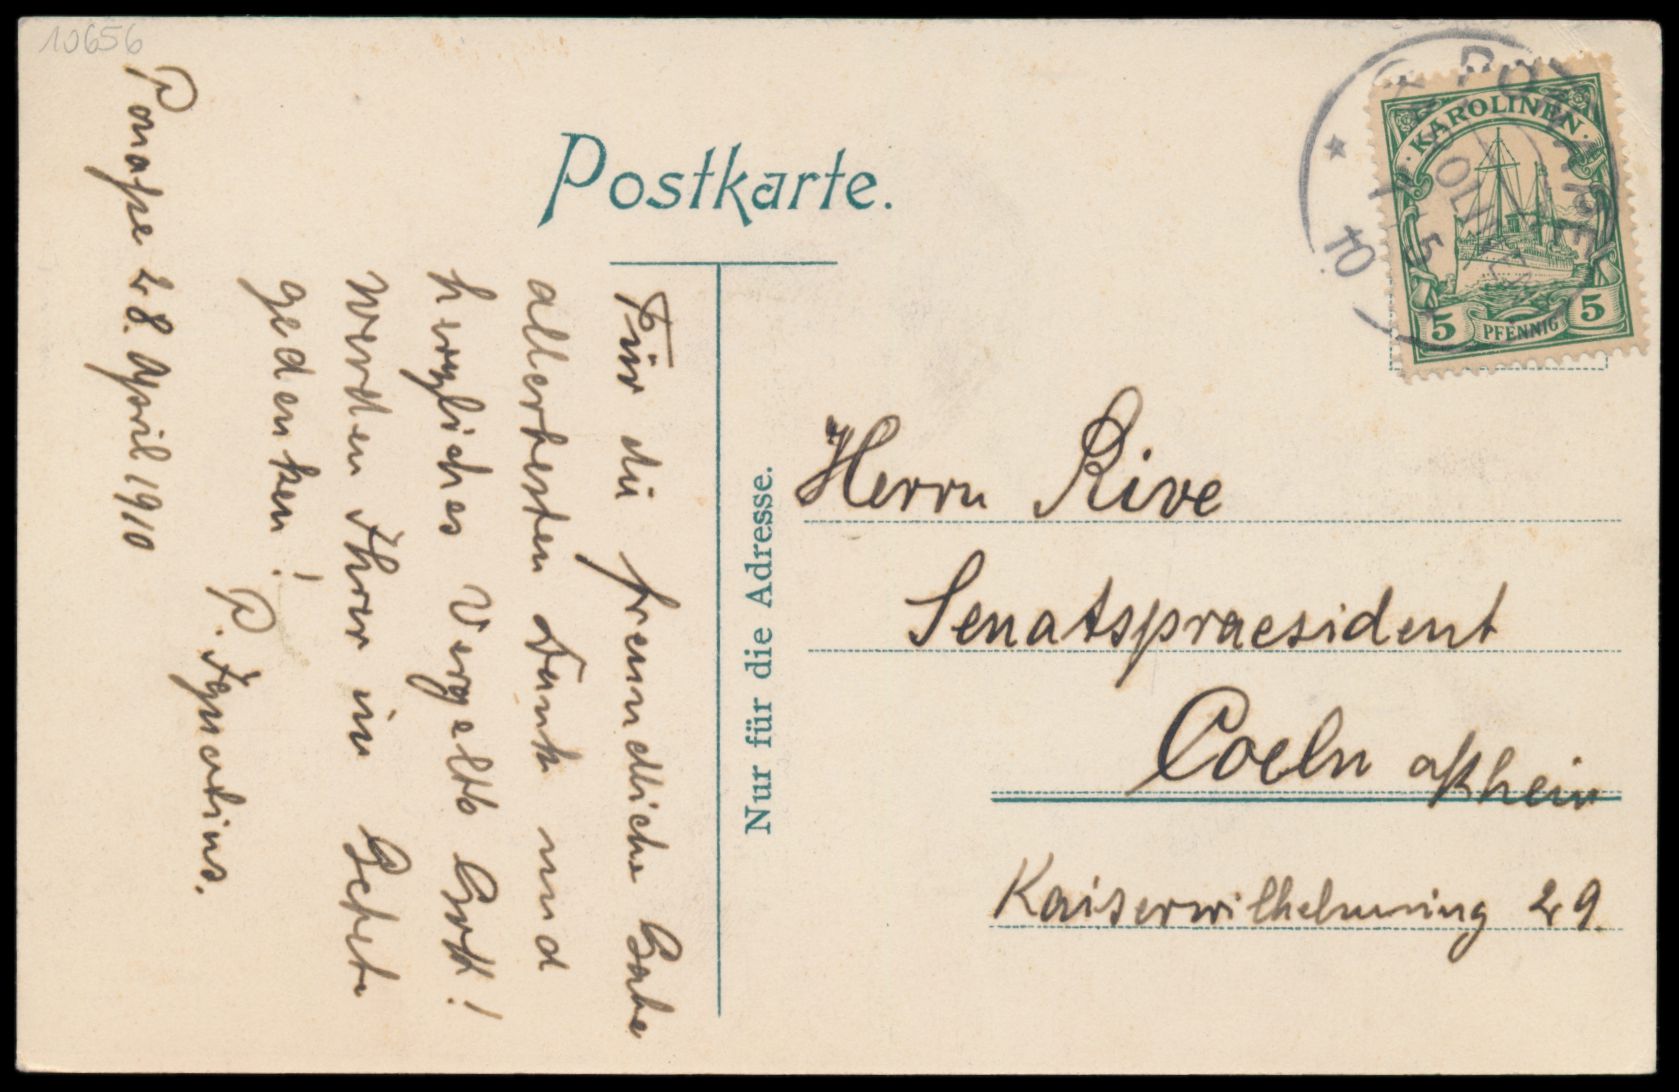 10656
Postkarte.
KAROLINEN
5 PFENNIG 5
PONAPE
KAROLINEN
5
10.
Nur für die Adresse.
Herrn Rive
Senatspraesident
Coeln a/Rhein
Kaiserwilhelmring 29.
Ponape 28. April 1910
Für die freundliche Gabe
allerbesten Dank und
herzliches Vergelts Gott!
Werden Ihrer im Gebete
gedenken!
P. Ignatius.